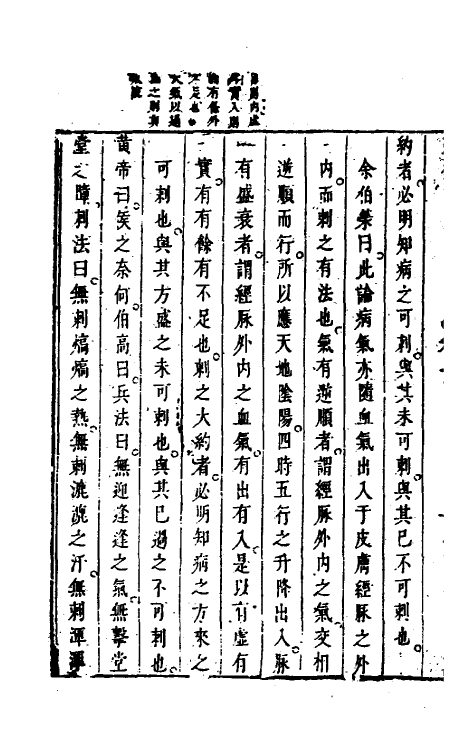 約者必明知病之可刺與其未可刺與其已不可刺也
余伯榮曰此論病氣亦隨血氣出入于皮膚經脉之外
内而刺之有法也氣有逆順者謂經脉外内之氣交相
逆順而行所以應天地陰陽四時五行之升降出入脉
有盛衰者謂經脉外内之血氣有出有入是以有虛有
實有有餘有不足也刺之大約者必明知病之方來之
可刺也與其方盛之未可刺也與其已過之不可刺也
黄帝曰矦之奈何伯高曰兵法曰無迎逢逢之氣無擊堂
堂之陣刺法曰無刺熇熇之熱無刺漉漉之汗無刺渾渾